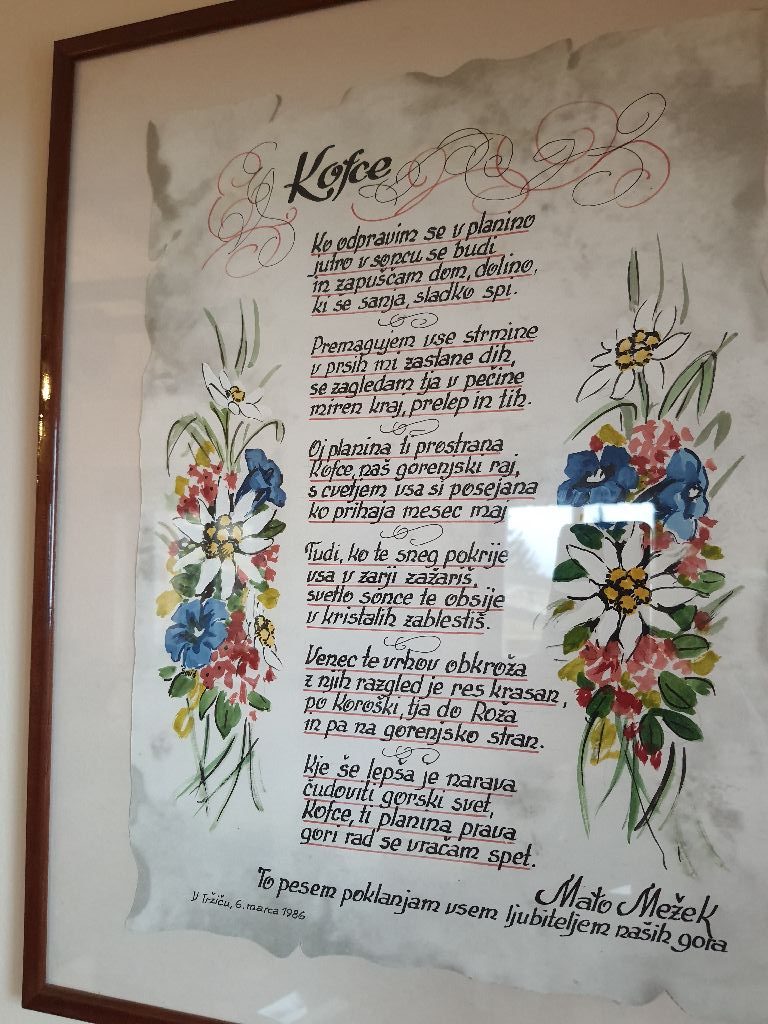 Kofce
Ko odpravim se v planino
jutro v soncu se budi
in zapuščam dom, dolino,
ki se sanja, sladko spi.
Premagujem vse strmine
v prsih mi zastane dih,
se zagledam tja v pečine
miren kraj, prelep in tih.
Oj planina ti prostrana
Kofce, naš gorenjski raj,
s cvetjem vsa si posejana
ko prihaja mesec maj
Tudi, ko te sneg pokrije
vsa v zarji zažariš,
svetlo sonce te obsije
v kristalih zablestiš.
Venec te vrhov obkroža
z njih razgled je res krasan,
po Koroški, tja do Roža
in pa na gorenjsko stran.
Kje še lepša je narava
čudoviti gorski svet,
Kofce, ti planina prava
gori rad se vračam spet.
Mato Mežek
To pesem poklanjam vsem ljubiteljem naših gora
V Tržiču, 6. marca 1986